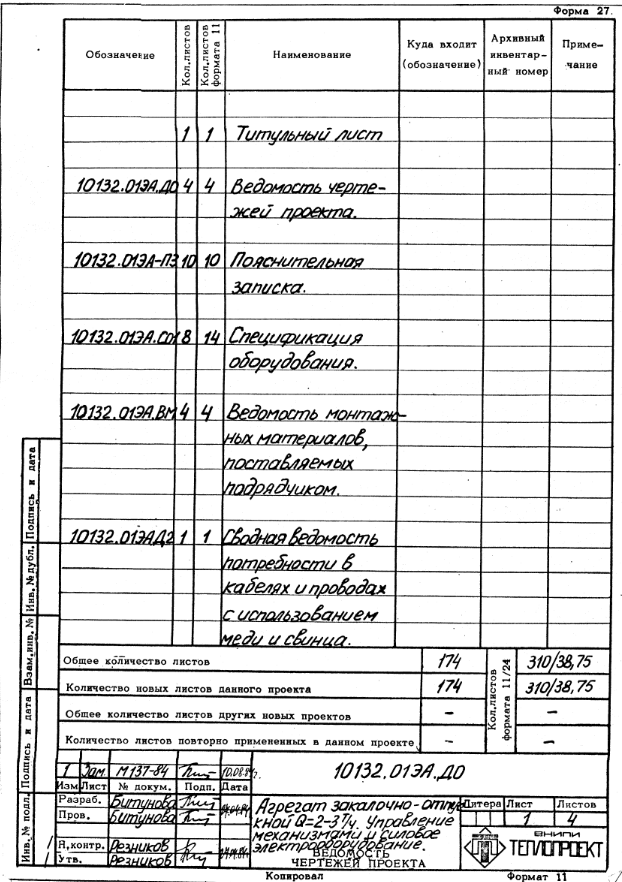 Форма 27.
Обозначение
Кол.листов
Кол.листов формата 11
Наименование
Куда входит (обозначение)
Архивный инвентар-ный номер
Приме-чание
1 1 Титульный лист
10132.01ЭА.ДО 4 4 Ведомость черте-
жей проекта.
10132.01ЭА-ПЗ 10 10 Пояснительная
записка.
10132.01ЭА.СО 8 14 Спецификация
оборудования.
10132.01ЭА.ВМ 4 4 Ведомость монтаж-
ных материалов,
поставляемых
подрядчиком.
10132.01ЭАД2 1 1 Сводная ведомость
потребности в
кабелях и проводах
с использованием
меди и свинца.
Общее количество листов 174
Количество новых листов данного проекта 174
Общее количество листов других новых проектов –
Количество листов повторно примененных в данном проекте –
Кол.листов формата 11/24
310/38,75
310/38,75
–
–
Инв. № подл. Подпись и дата Взам.инв. № Инв. № дубл. Подпись и дата
1 Зам М137-84 10.08.84г.
Изм Лист № докум. Подп. Дата
10132.01ЭА.ДО
Разраб. Битунова
Пров. Битунова
Н,контр. Резников
Утв. Резников
Агрегат закалочно-отпус
кной Q-2-3 т/ч. Управление
механизмами и силовое
электрооборудование.
ВЕДОМОСТЬ
ЧЕРТЕЖЕЙ ПРОЕКТА
Литера Лист Листов
1 4
ВНИПИ
ТЕПЛОПРОЕКТ
Копировал
Формат 11